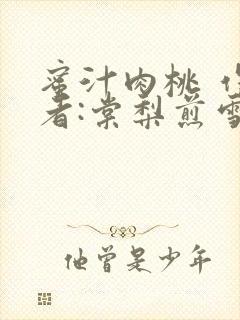 蜜汁肉桃 作
者:棠梨煎雪
他曾是少年